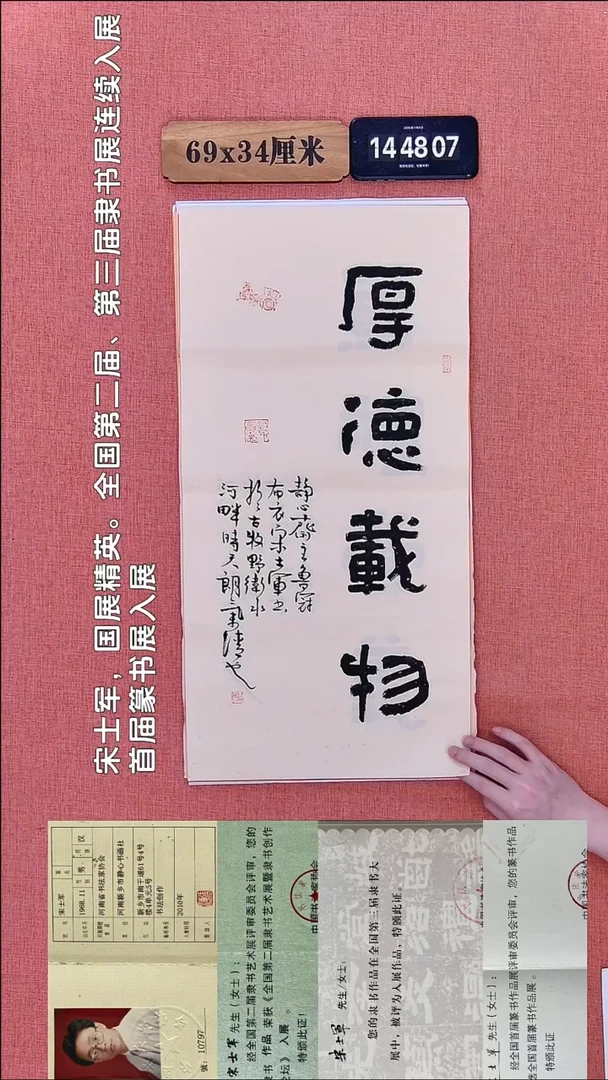 宋士军，国展精英。全国第二届、第三届隶书展连续入展
首届篆书展入展
69x34厘米
14 48 07
厚德載物
静心齋主魯冠
布衣宋士軍書
於古牧野衛水
河畔時天朗氣清也
宋士军
1968.11
男
汉
河南省书法家协会
河南新乡市静心书画社
书法创作
2010年
號：10797
宋士军 先生（女士）：
经全国第二届隶书艺术展评审委员会评审，您的
书 作品 荣获《全国第二届隶书艺术展暨隶书创作
论坛》入展 。
特颁此证！
宋士军 先生/女士：
您的隶书作品在全国第三届隶书大
展中，被评为入展作品，特颁此证。
士军 先生（女士）：
经全国首届篆书作品展评审委员会评审，您的篆书作品
全国首届篆书作品展 。
特颁此证